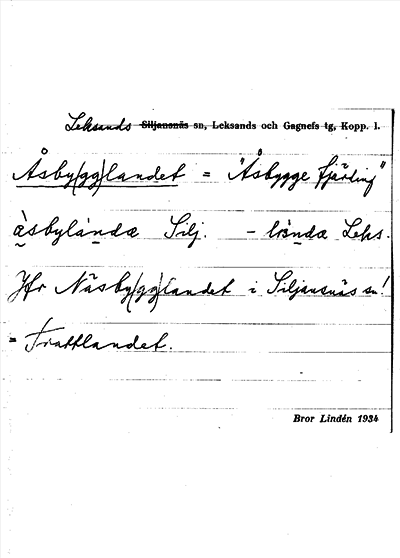 Leksands Siljansnäs sn, Leksands och Gagnefs tg, Kopp. l.
Åsby(gg)landet = "Åsbygge fjärding"
åsbylándæ Silj. - lándæ Leks.
Jfr Näsby(gg)landet i Siljansnäs sn!
= Frattlandet.
Bror Lindén 1934